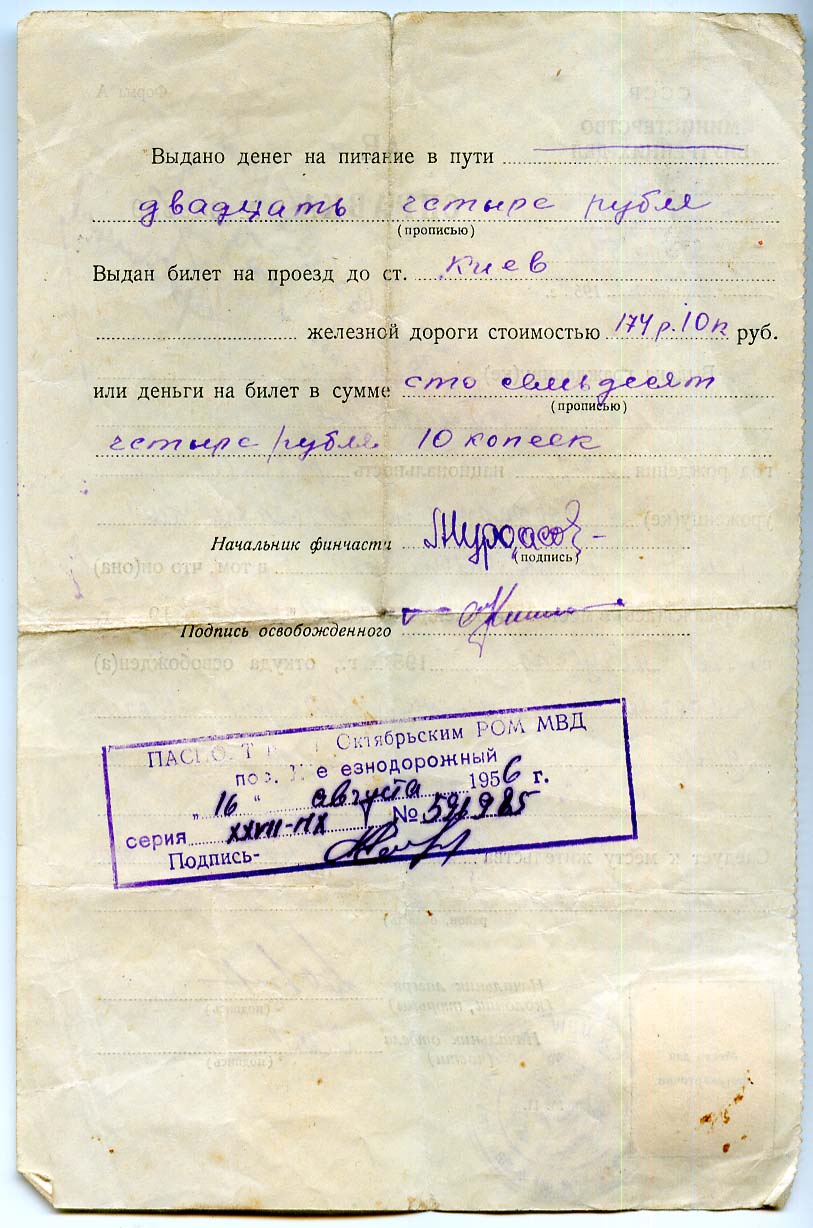 Выдано денег на питание в пути
двадцать четыре рубля
(прописью)
Выдан билет на проезд до ст. Киев
железной дороги стоимостью 174 р. 10 к руб.
или деньги на билет в сумме сто семьдесят
(прописью)
четыре рубля 10 копеек
Начальник финчасти
(подпись)
Подпись освобожденного
Октябрьским РОМ МВД
„ 16 “ августа 1956 г.
серия XXVII-ПХ № 591985
Подпись-